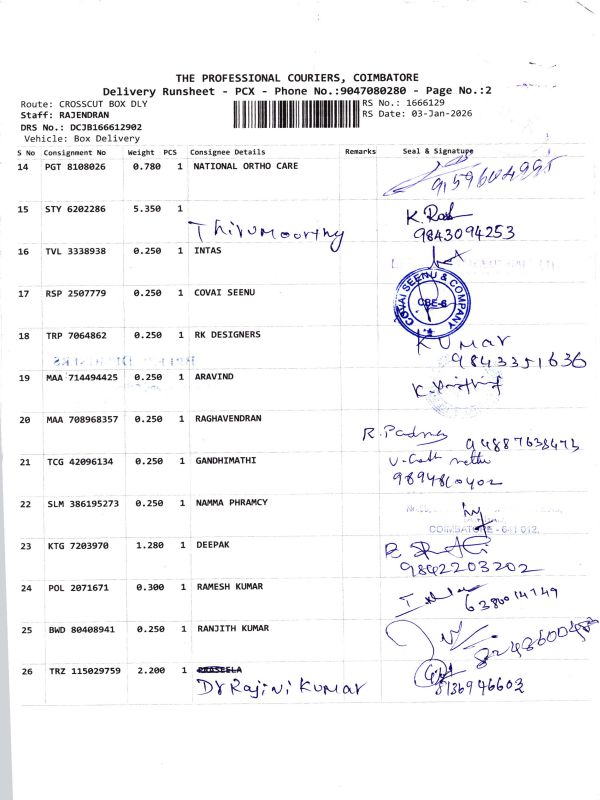 THE PROFESSIONAL COURIERS, COIMBATORE
Delivery Runsheet - PCX - Phone No.:9047080280 - Page No.:2
Route: CROSSCUT BOX DLY RS No.: 1666129
Staff: RAJENDRAN RS Date: 03-Jan-2026
DRS No.: DCJB166612902
Vehicle: Box Delivery
S No Consignment No Weight PCS Consignee Details Remarks Seal & Signature
14 PGT 8108026 0.780 1 NATIONAL ORTHO CARE
15 STY 6202286 5.350 1
Thirumoorthy
9843094253
16 TVL 3338938 0.250 1 INTAS
17 RSP 2507779 0.250 1 COVAI SEENU
COVAI SEENU & COMPANY
CBE-6
18 TRP 7064862 0.250 1 RK DESIGNERS
KUMAR
9843351636
19 MAA 714494425 0.250 1 ARAVIND
20 MAA 708968357 0.250 1 RAGHAVENDRAN
R. Padma
21 TCG 42096134 0.250 1 GANDHIMATHI
9894860402
22 SLM 386195273 0.250 1 NAMMA PHRAMCY
COIMBATORE - 641 012.
23 KTG 7203970 1.280 1 DEEPAK
9842203202
24 POL 2071671 0.300 1 RAMESH KUMAR
25 BWD 80408941 0.250 1 RANJITH KUMAR
26 TRZ 115029759 2.200 1
Dr Rajini Kumar
8136946603